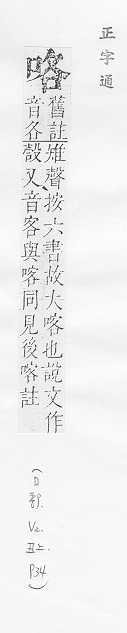 正字通
咯
舊註雉聲按六書故大喀也說文作
音各嗀又音客與喀同見後喀註
(口部. V2. 丑上. P34)